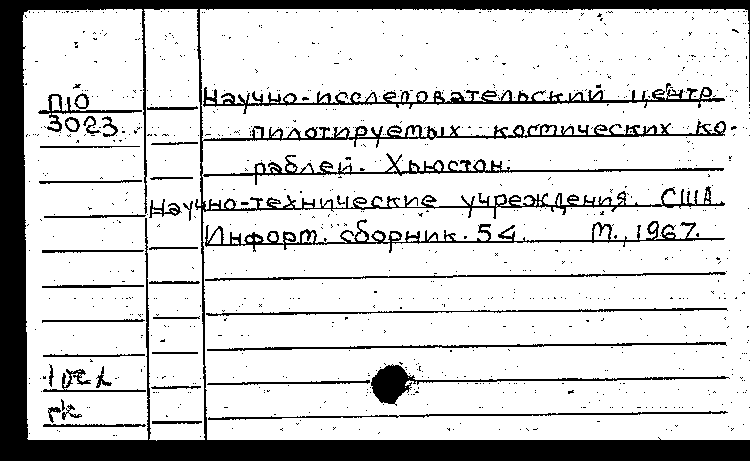 П10
3023.
Научно-исследовательский центр
пилотируемых космических ко-
раблей. Хьюстон.
Научно-технические учреждения. США.
Информ. сборник. 54. М., 1967.
рк